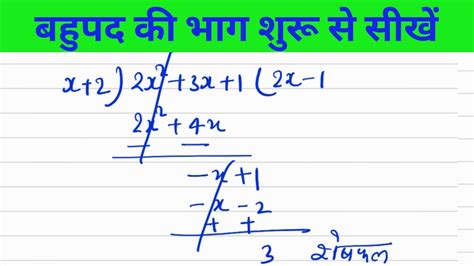 बहुपद की भाग शुरू से सीखें
x+2) 2x²+3x+1 (2x-1
2x²+4x
— —
-x+1
-x-2
+ +
3 शेषफल